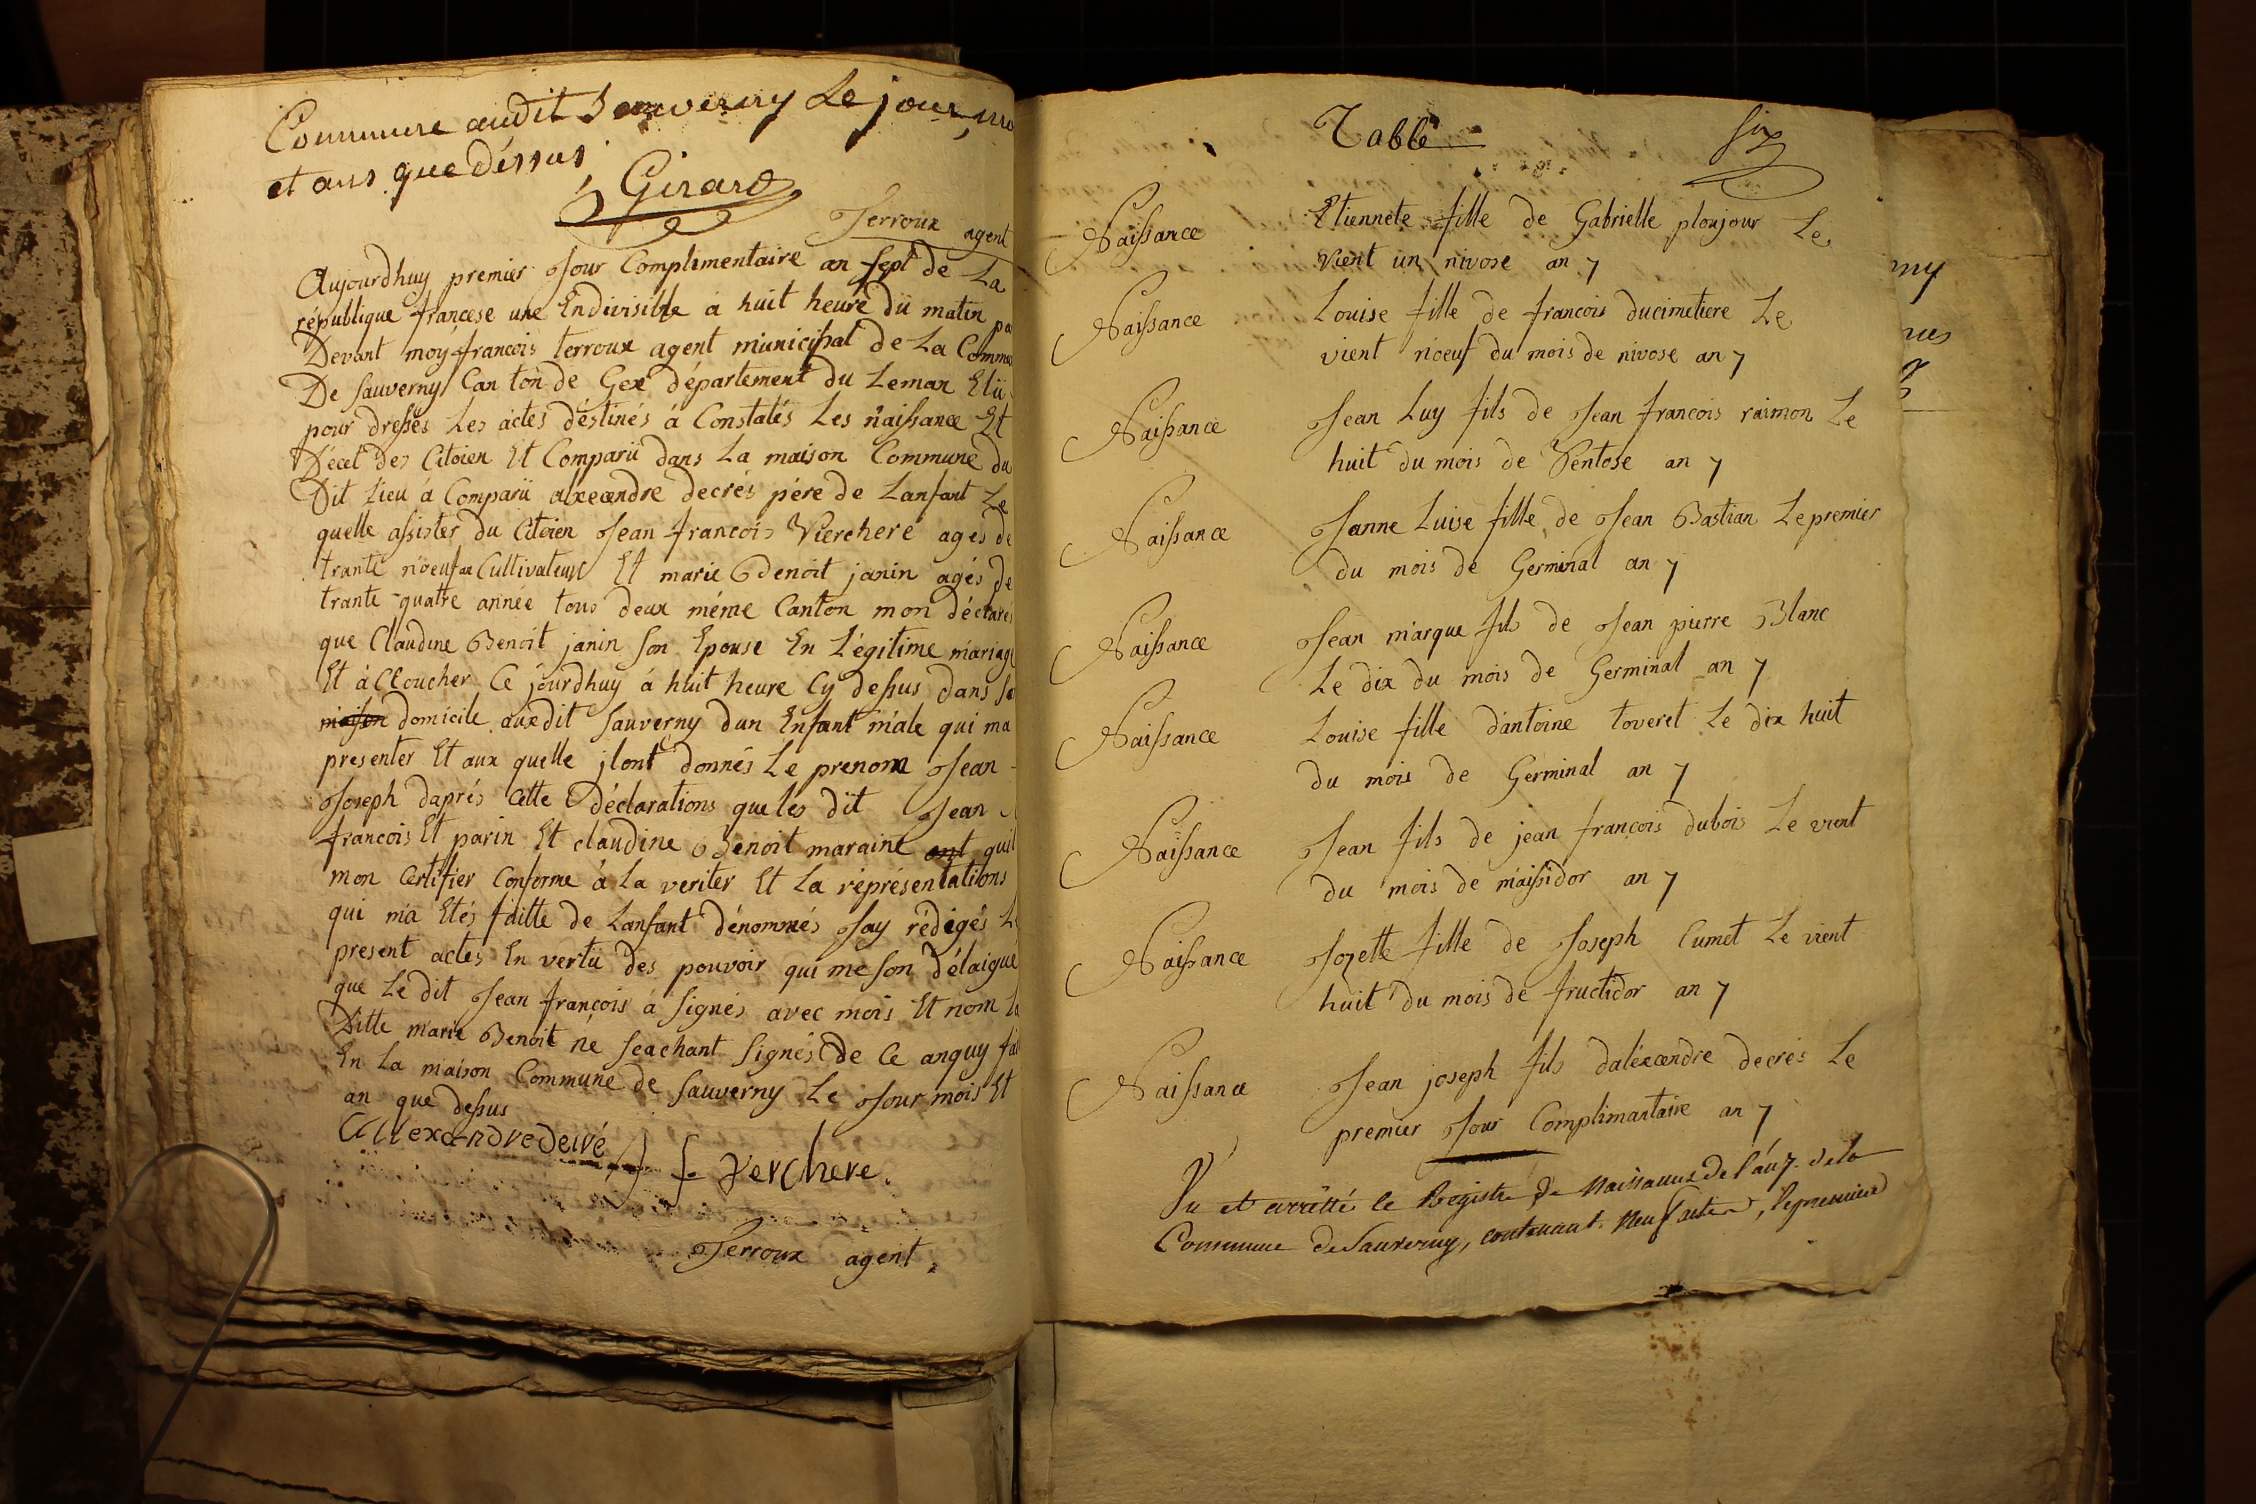 Commune audit Sauverny Le jour, mo
et ans que Déssus
Girard
Terroux agent
Aujourdhuy premier Jour Complimentaire an sept de La
république francese une Endivisible á huit heure du matin pa
Devant moy francois terroux agent municipal de La Commu
De Sauverny Can ton de Gex département du Leman Elü
pour dressés Les actes déstinés á Constatés Les naissance Et
Décet des Citoien Et Comparü dans La maison Commune du
Dit Lieu á Comparü alxeœndre decrés pére de Lanfant Le
quelle assister du Citoien Jean francois Vierchere agés de
trante nöeuf Cultivateur Et marie Benoit janin agés de
trante quatre année tous deux méme Canton mon déclarés
que Claudine Benoit janin son Epouse En Légitime mariage
Et áccloucher Ce jourdhuy á huit heure Cy dessus dans so
maison domicile auxdit Sauverny dun Enfant mâle qui ma
presenter Et aux quelle jlont donnés Le prenom Jean
Joseph daprés Cette Déclarations que les dit Jean
francois Et parin Et claudine Benoit maraine ont quil
mon Certifier Conforme á La veriter Et La répresentations
qui ma Etés faitte de Lanfant dénommés Jay rédigés Le
present actes En vertü des pouvoir qui me son délaigue
que Le dit Jean françois á Signés avec mois Et nom La
Ditte marie Benoit né seachant Signés de Ce anquy fai
En La maison Commune de Sauverny Le Jour mois Et
an que dessus
Allexandre deivé
J f Verchere.
Terroux agent
Table
six
Naissance Etiennete fille de Gabrielle ploujour Le
vient un nivose an 7
Naissance Louise fille de francois ducimetiere Le
vient noeuf du mois de nivose an 7
Naissance Jean Luy fils de Jean francois raimon Le
huit du mois de Ventose an 7
Naissance Janne Luise fille de Jean Bastian Le premier
du mois de Germinal an 7
Naissance Jean marque fils de Jean pierre Blanc
Le dix du mois de Germinal an 7
Naissance Louise fille dantoine toveret Le dix huit
du mois de Germinal an 7
Naissance Jean fils de jean françois dubois Le vient
du mois de maissidor an 7
Naissance Jozette fille de Joseph Cumet Le vient
huit du mois de fructidor an 7
Naissance Jean joseph fils daléxœndre decrés Le
premier Jour Complimantaire an 7
Vu et arrêtté le Registre de Naissances de l'an 7. de la
Commune de Sauverny, contenant neuf actes, le premier
my